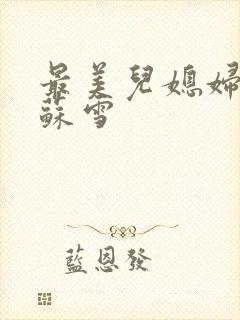 最美兒媳婦
蘇雪
藍恩發